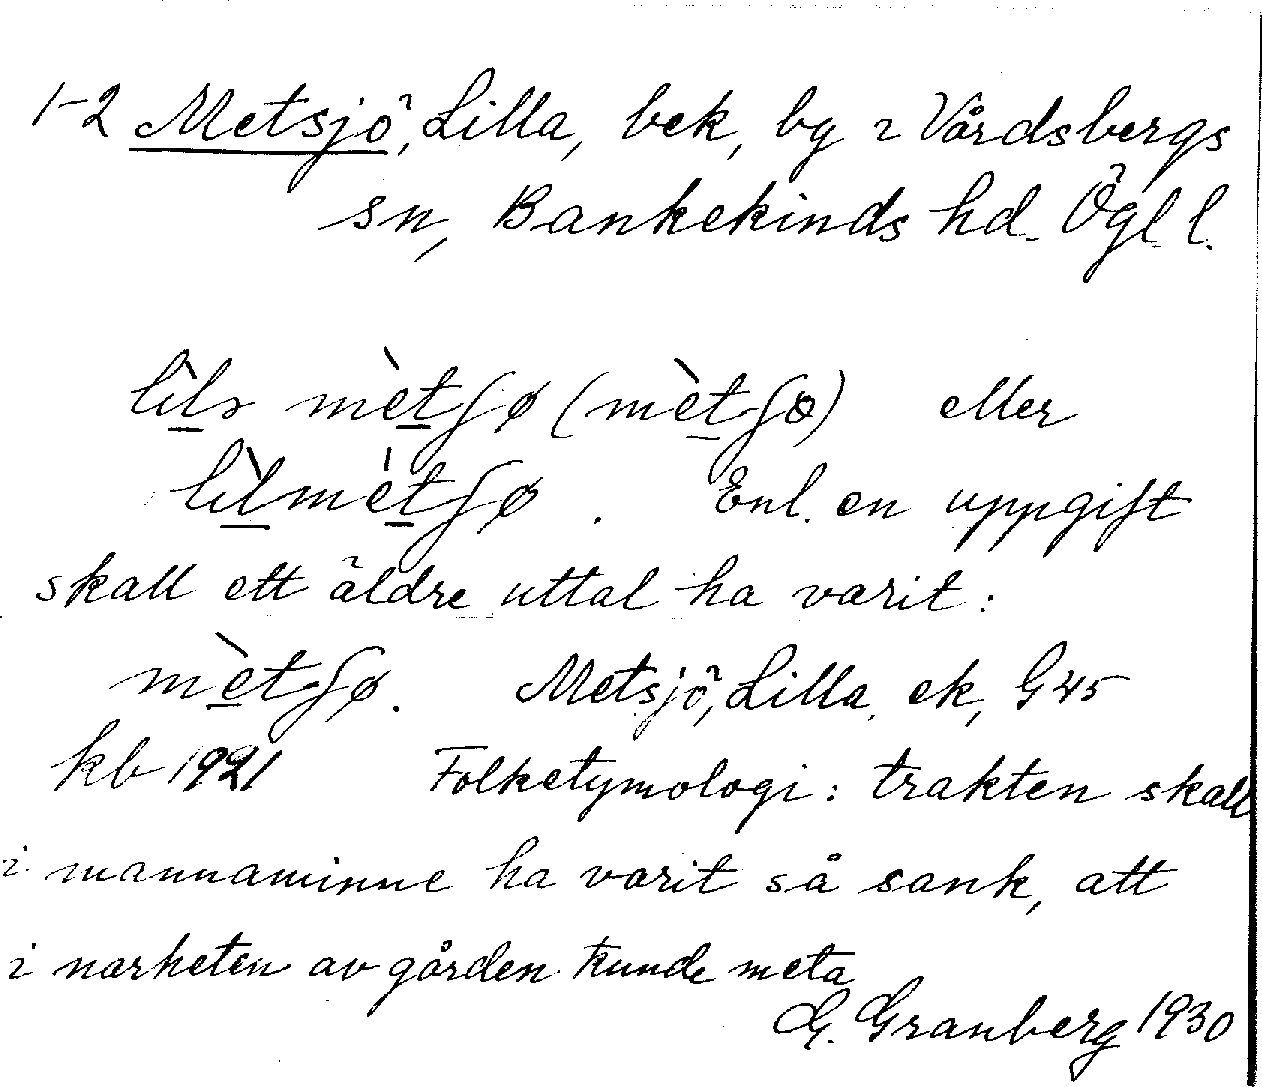 1-2 Metsjö, Lilla, bek, by i Vårdsbergs
sn, Bankekinds hd. Ögl l.
lìlə mètʃø (mètʃo) eller
lìlmètʃø. Enl. en uppgift
skall ett äldre uttal ha varit:
mètʃø. Metsjö, Lilla, ek, G 45
kb 1921 Folketymologi: trakten skall
i mannaminne ha varit så sank, att
i narheten av gården kunde meta
G. Granberg 1930